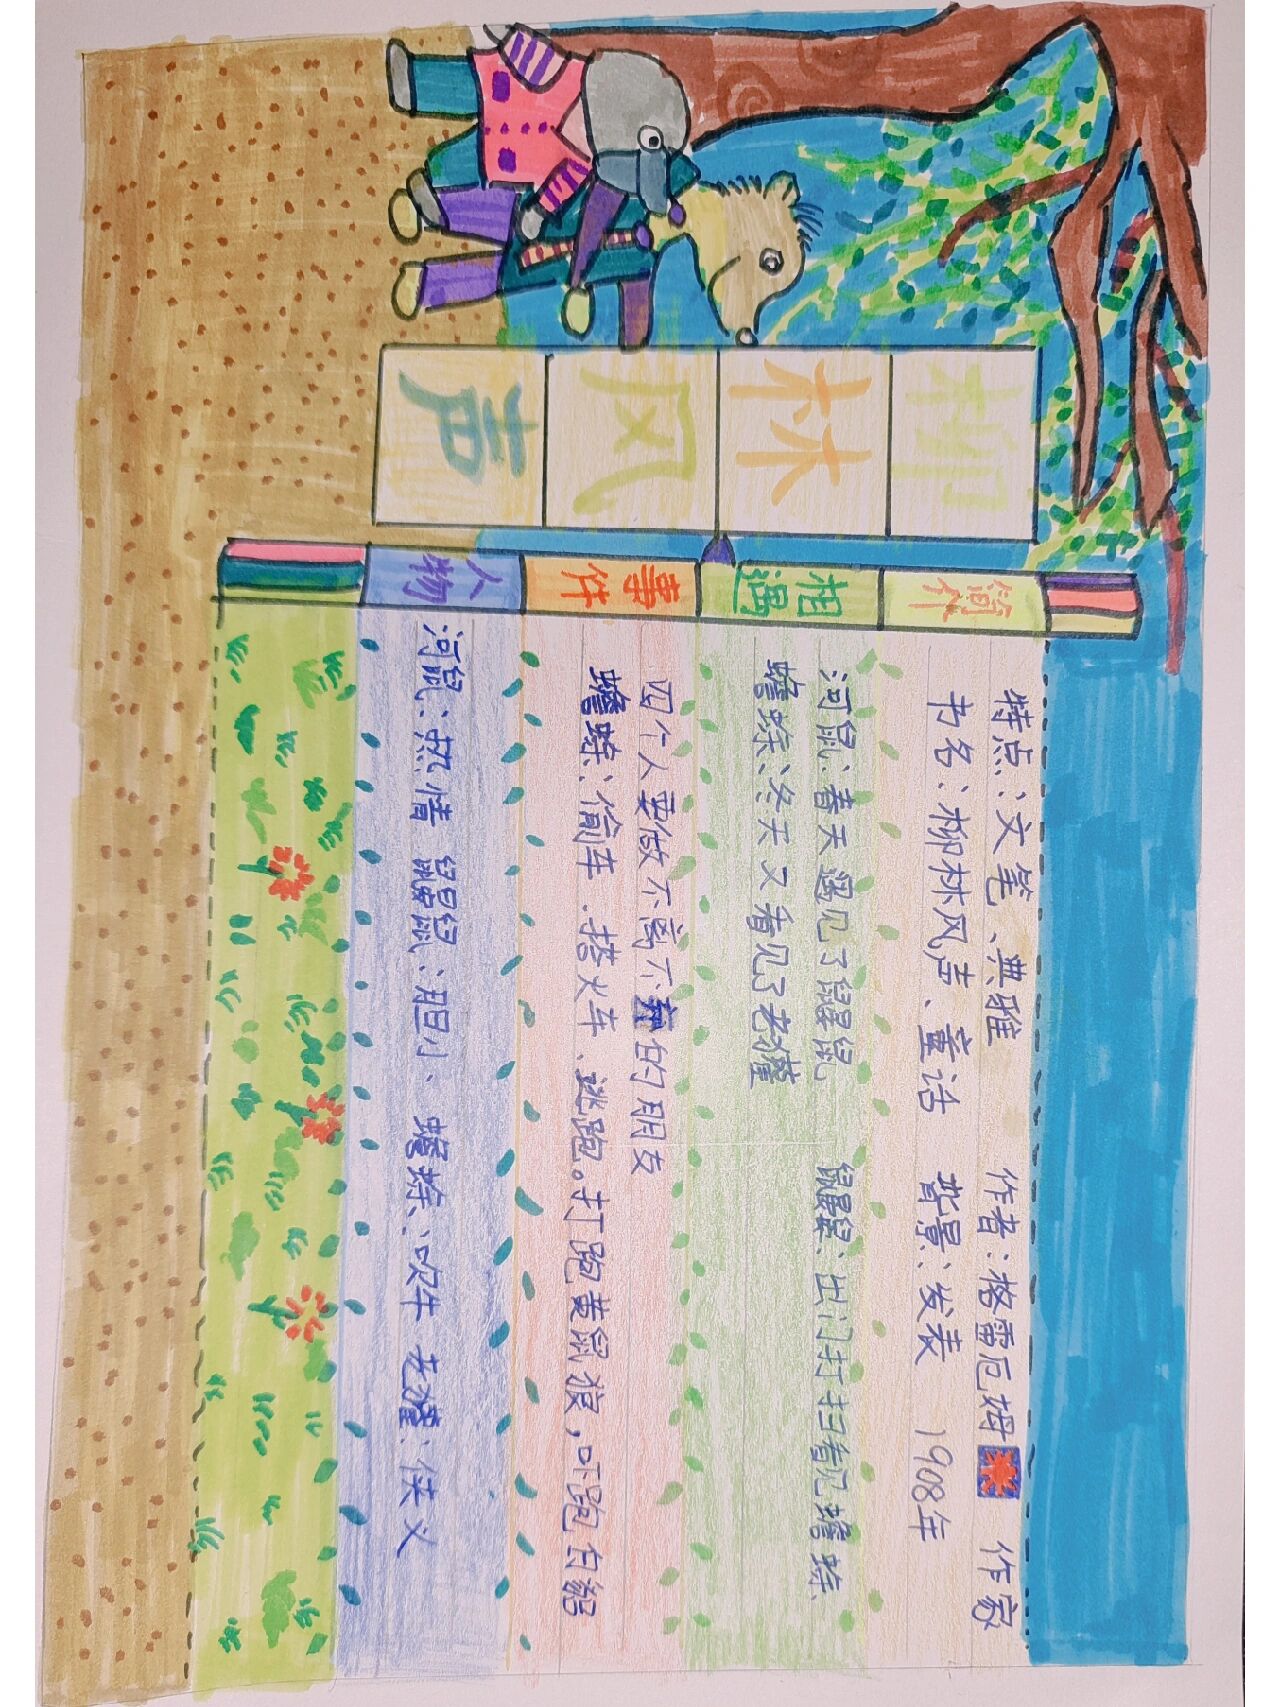 柳林风声
简介
特点：文笔、典雅 作者：格雷厄姆 作家
书名：柳林风声、童话 背景：发表 1908年
相遇
河鼠：春天遇见了鼹鼠 鼹鼠：出门打扫看见蟾蜍
蟾蜍：冬天又看见了老獾
事件
四个人要做不离不弃的朋友
蟾蜍：偷车·搭火车、逃跑。打跑黄鼠狼，吓跑白鼬
人物
河鼠：热情 鼹鼠：胆小、蟾蜍：吹牛 老獾：侠义